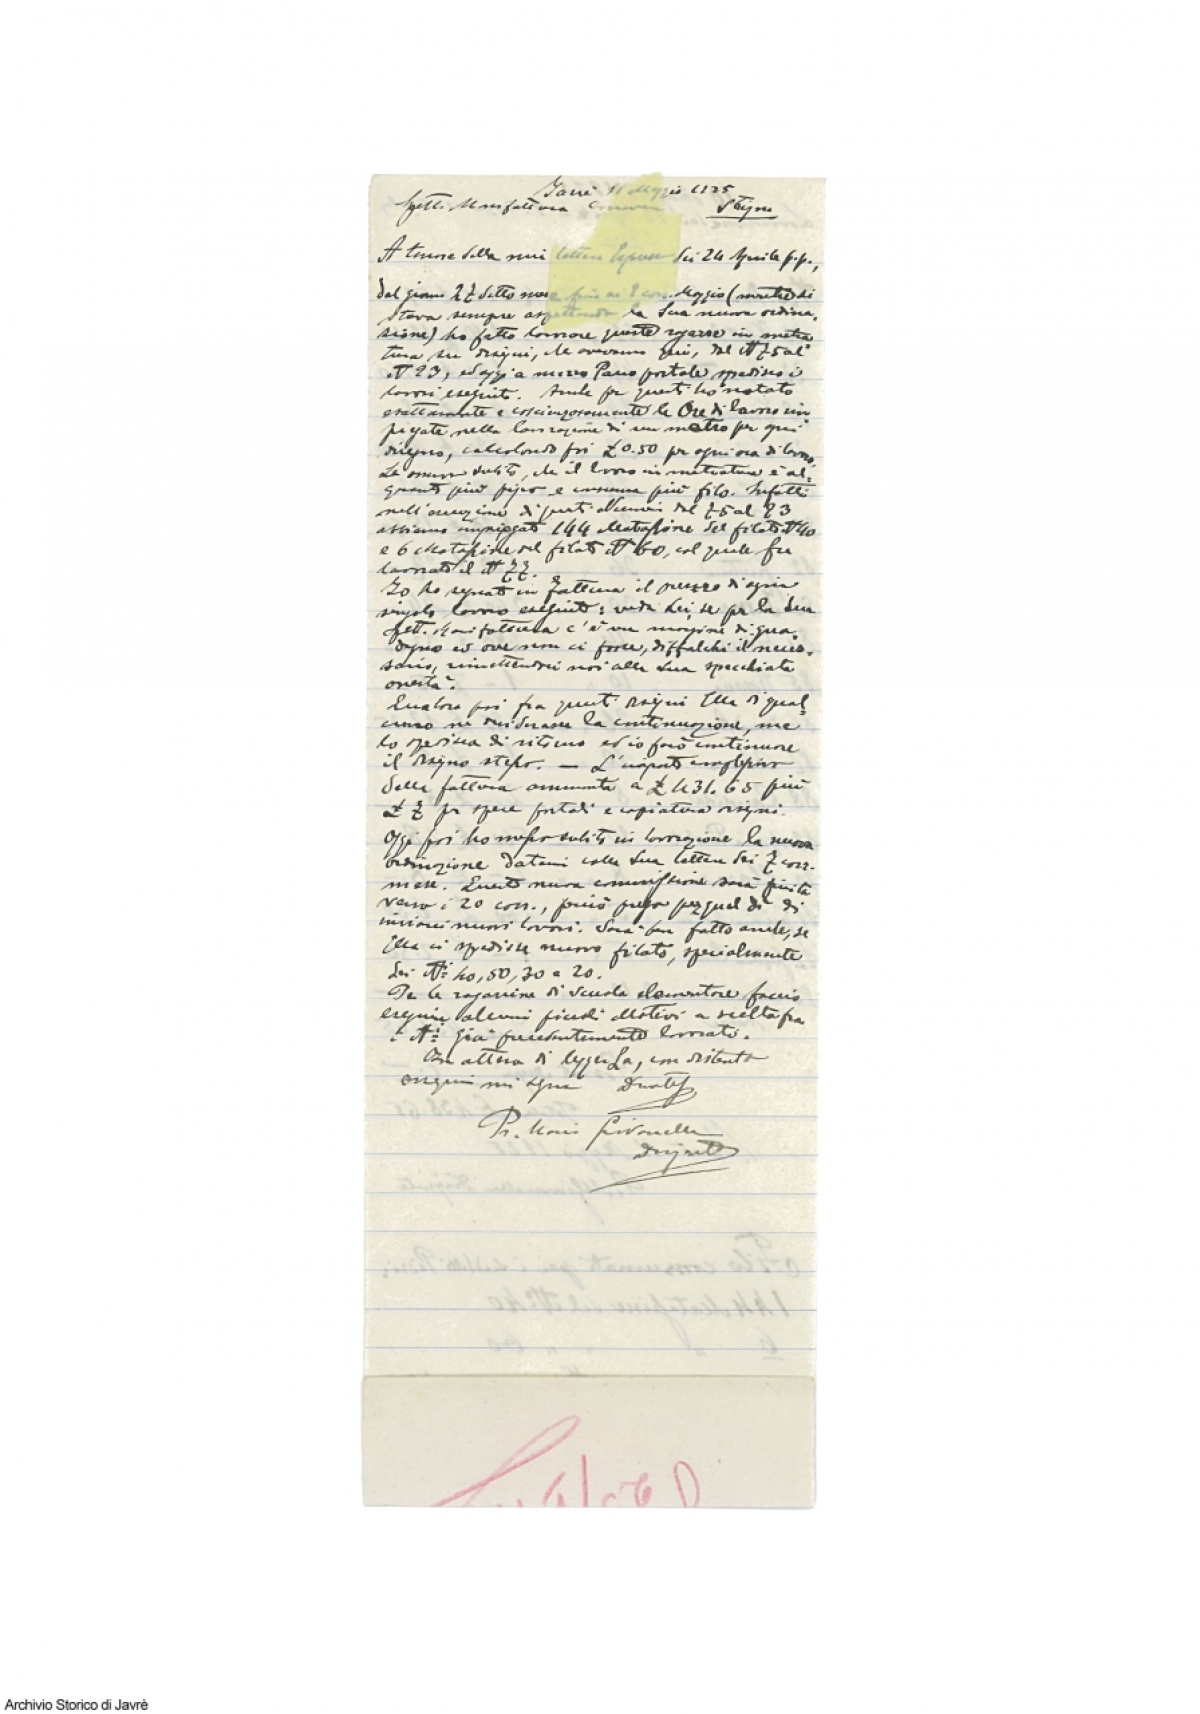 Javrè 11 Maggio 1925
Spett. Manifattura Stia
A tenore della mia lettera Espresso dei 24 Aprile p.p.,
dal giorno 27 detto mese fino ai 8 corr. Maggio (mentre si
stava sempre aspettando la Sua nuova ordina-
zione) ho fatto lavorare queste ragazze in metra
tura su disegni, che avevamo qui, dal Nº 75 al
Nº 93, ed oggi a mezzo Pacco postale spedisco i
lavori eseguiti. Anche per questi ho notato
esattamente e coscienzosamente le Ore di lavoro im
piegate nella lavorazione di un metro per ogni
disegno, calcolando poi £ 0.50 per ogni ora di lavoro.
Le osservo subito, che il lavoro in metratura è al-
quanto più pigro e consuma più filo. Infatti
nell'esecuzione di questi Numeri dal 75 al 93
abbiamo impiegato 144 Matassine del filato Nº 40
e 6 Matassine del filato Nº 60, col quale fu
lavorato il Nº 77.
Io ho segnato in fattura il prezzo di ogni
singolo lavoro eseguito; veda Lei, se per la Sua
Spett. Manifattura c'è un margine di gua
dagno ed ove non ci fosse, diffalchi il neces-
sario, rimettendoci noi alla Sua specchiata
onestà.
Qualora poi fra questi disegni Ella di qual-
cuno ne desiderasse la continuazione, me
lo spedisca di ritorno ed io farò continuare
il disegno stesso. — L'importo complessivo
della fattura ammonta a £ 431.65 più
£ 7 per spese postali e copiatura disegni.
Oggi poi ho messo subito in lavorazione la nuova
ordinazione datami colla Sua lettera dei 7 corr.
mese. Questa nuova commissione sarà finita
verso i 20 corr., perciò prego per quel dì di
inviarci nuovi lavori. Sarà ben fatto anche, se
Ella ci spedisse nuovo filato, specialmente
dei Nⁱ 40, 50, 30 e 20.
Per le ragazzine di Scuola elementare faccio
eseguire alcuni piccoli Motivi a scelta fra
i Nⁱ già precedentemente lavorati.
In attesa di leggerLa, con distinta
ossequi mi segno Devotº
Pr.
Dirigente